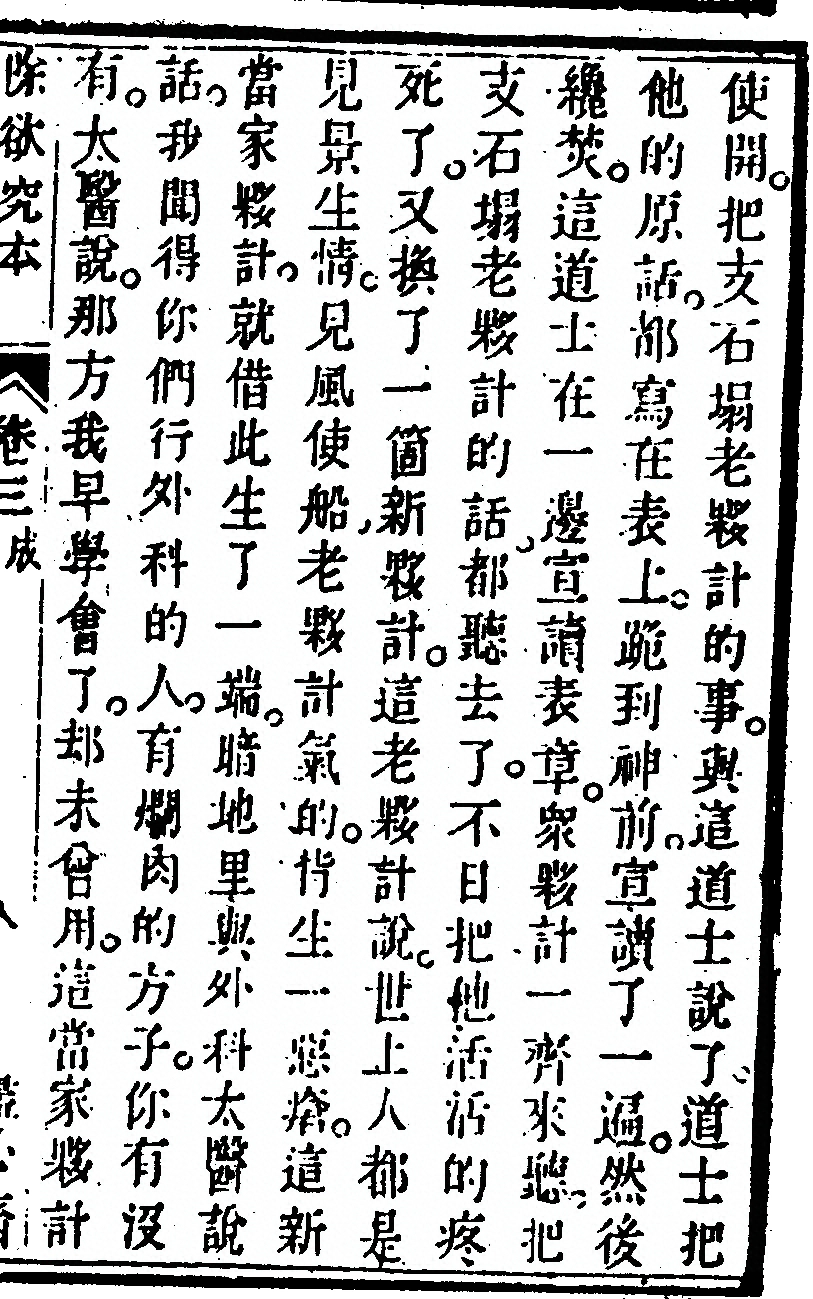 使開。把支石塌老夥計的事。與這道士說了。道士把
他的原話。都寫在表上。跪到神前。宣讀了一遍。然後
纔焚。這道士在一邊宣讀表章。衆夥計一齊來聽。把
支石塌老夥計的話都聽去了。不日把他活活的疼
死了。又換了一箇新夥計。這老夥計說。世上人都是
見景生情。見風使船。老夥計氣的。背生一惡瘡。這新
當家夥計。就借此生了一端。暗地里與外科太醫說
話。我聞得你們行外科的人。有爛肉的方子。你有沒
有。太醫說。那方我早學會了。却未曾用。這當家夥計
除欲究本 卷三 成